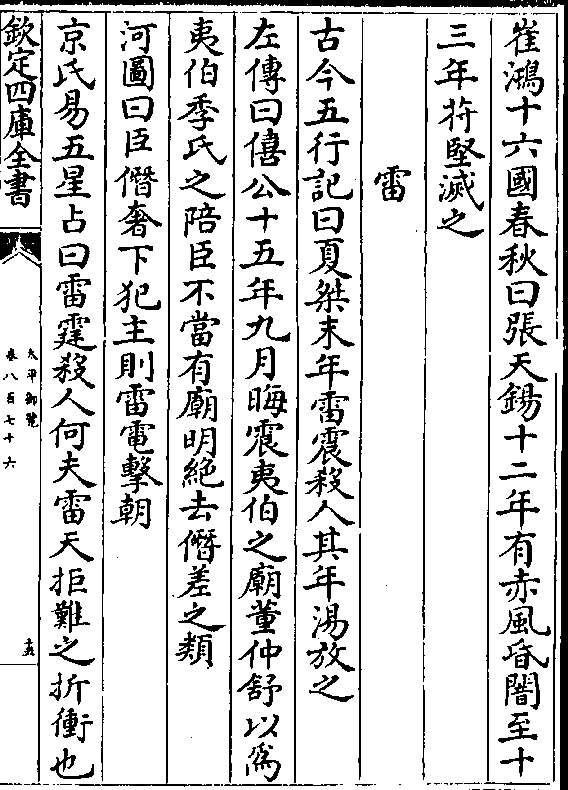 崔鴻十六國春秋曰張天錫十二年有赤風昏闇至十
三年苻堅滅之
雷
古今五行記曰夏桀末年雷震殺人其年湯放之
左傳曰僖公十五年九月晦震夷伯之廟董仲舒以為
夷伯季氏之陪臣不當有廟明絶去僭差之類
河圖曰臣僭奢下犯主則雷電擊朝
京氏易五星占曰雷霆殺人何夫雷天拒難之折衝也
欽定四庫全書
太平御覽
卷八百七十六
十五